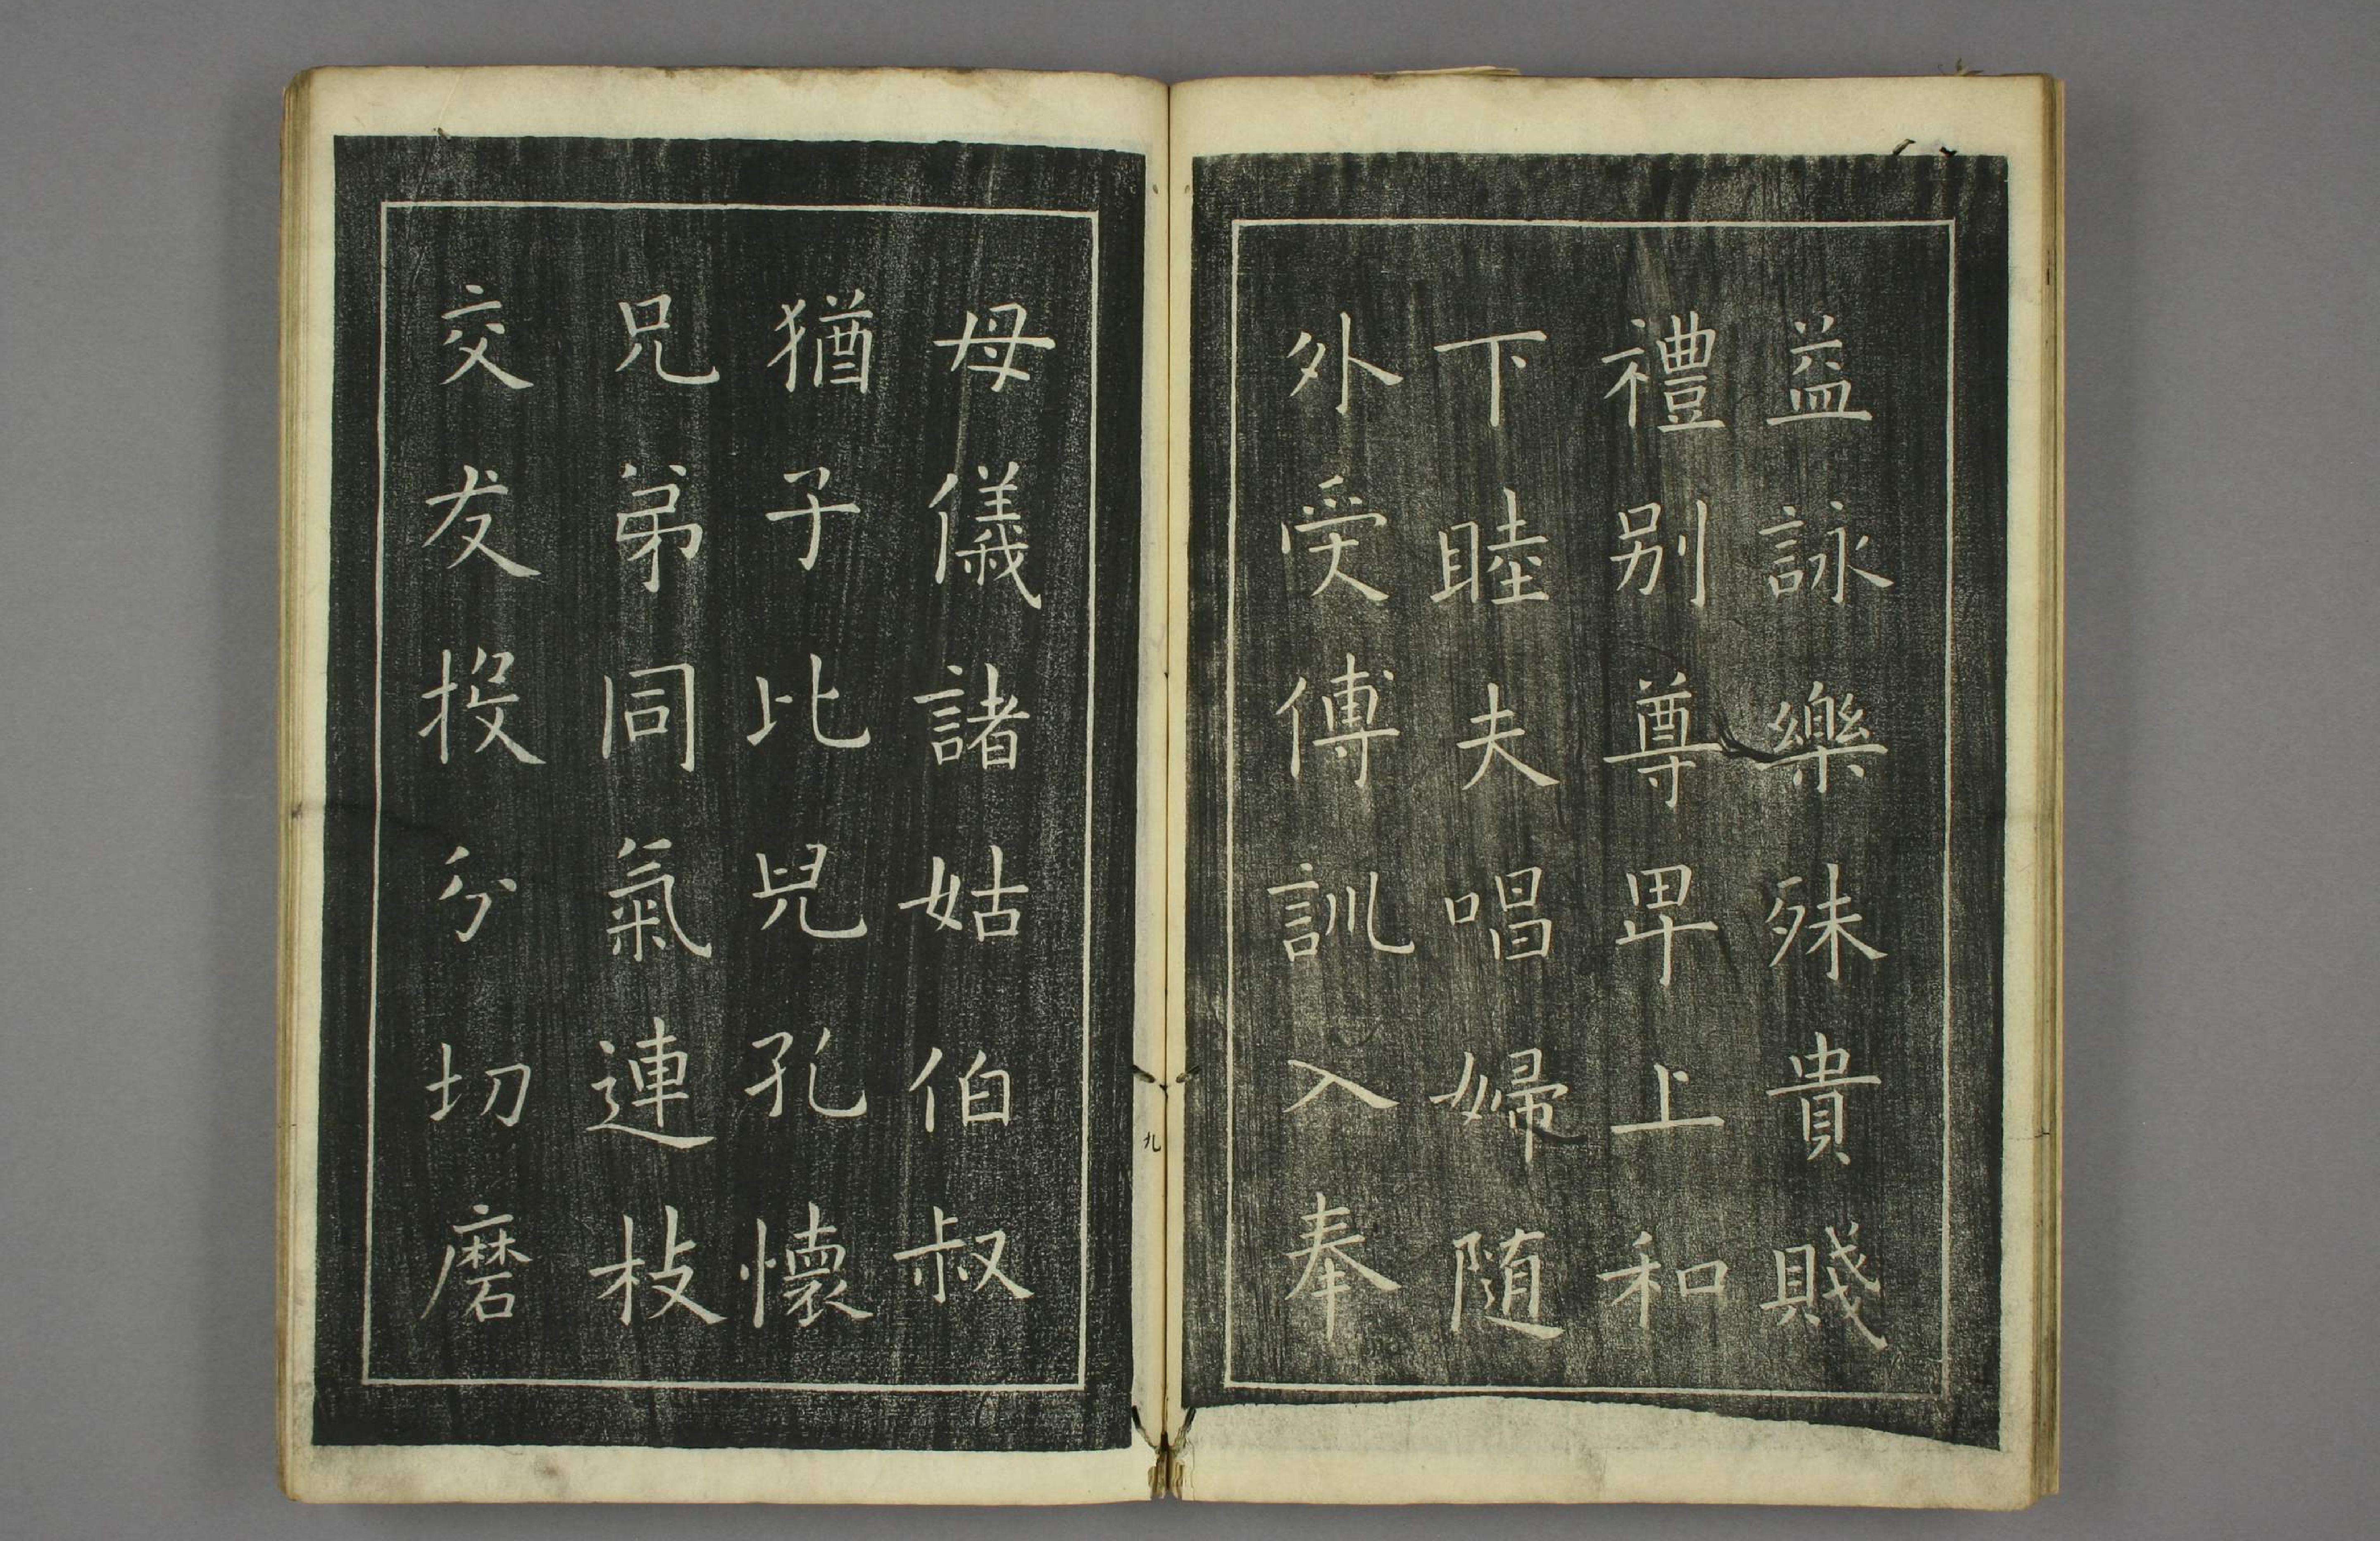 益詠樂殊貴賤
禮別尊卑上和
下睦夫唱婦随
外受傅訓入奉
母儀諸姑伯叔
猶子比兒孔懷
兄弟同氣連枝
交友投分切磨
九